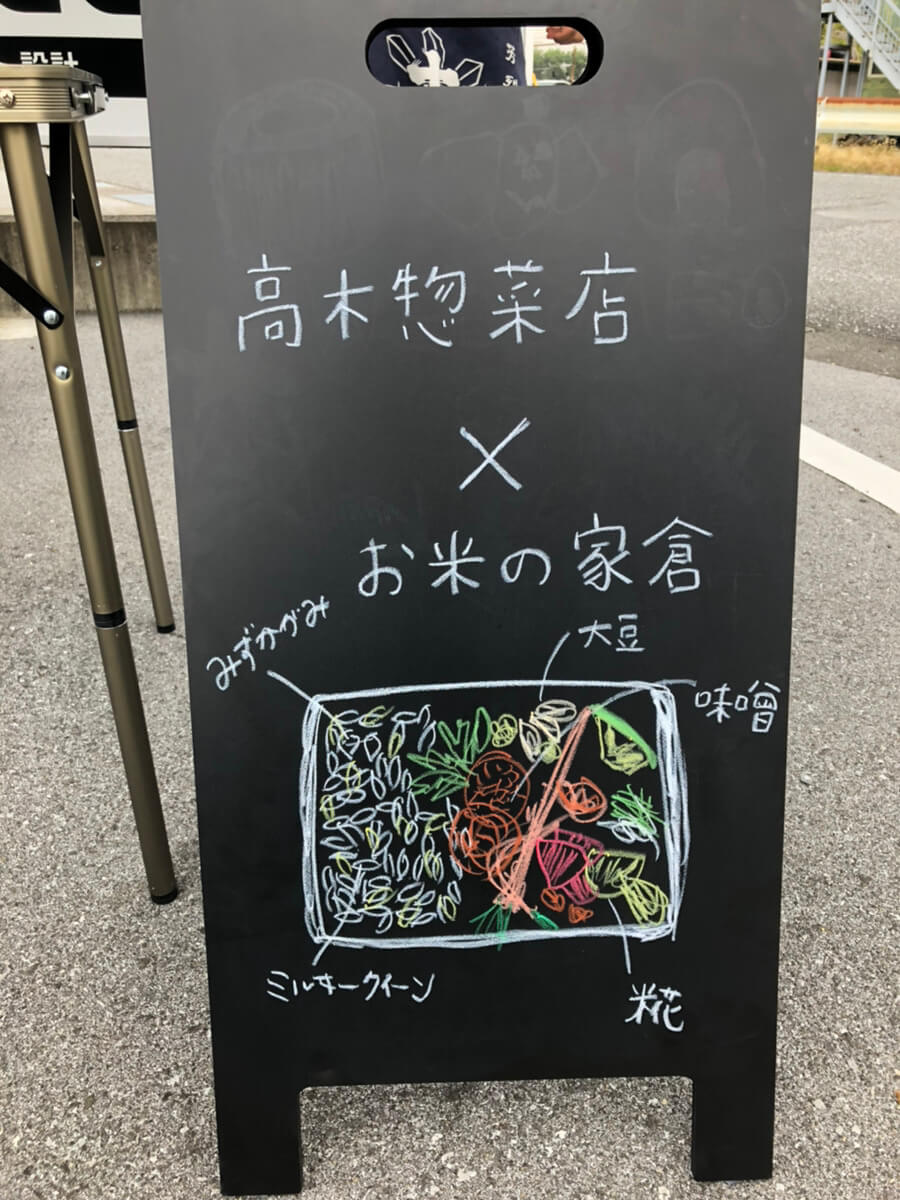 設計
高木惣菜店
×
お米の家倉
みずかがみ
大豆
味噌
ミルキークイーン
糀